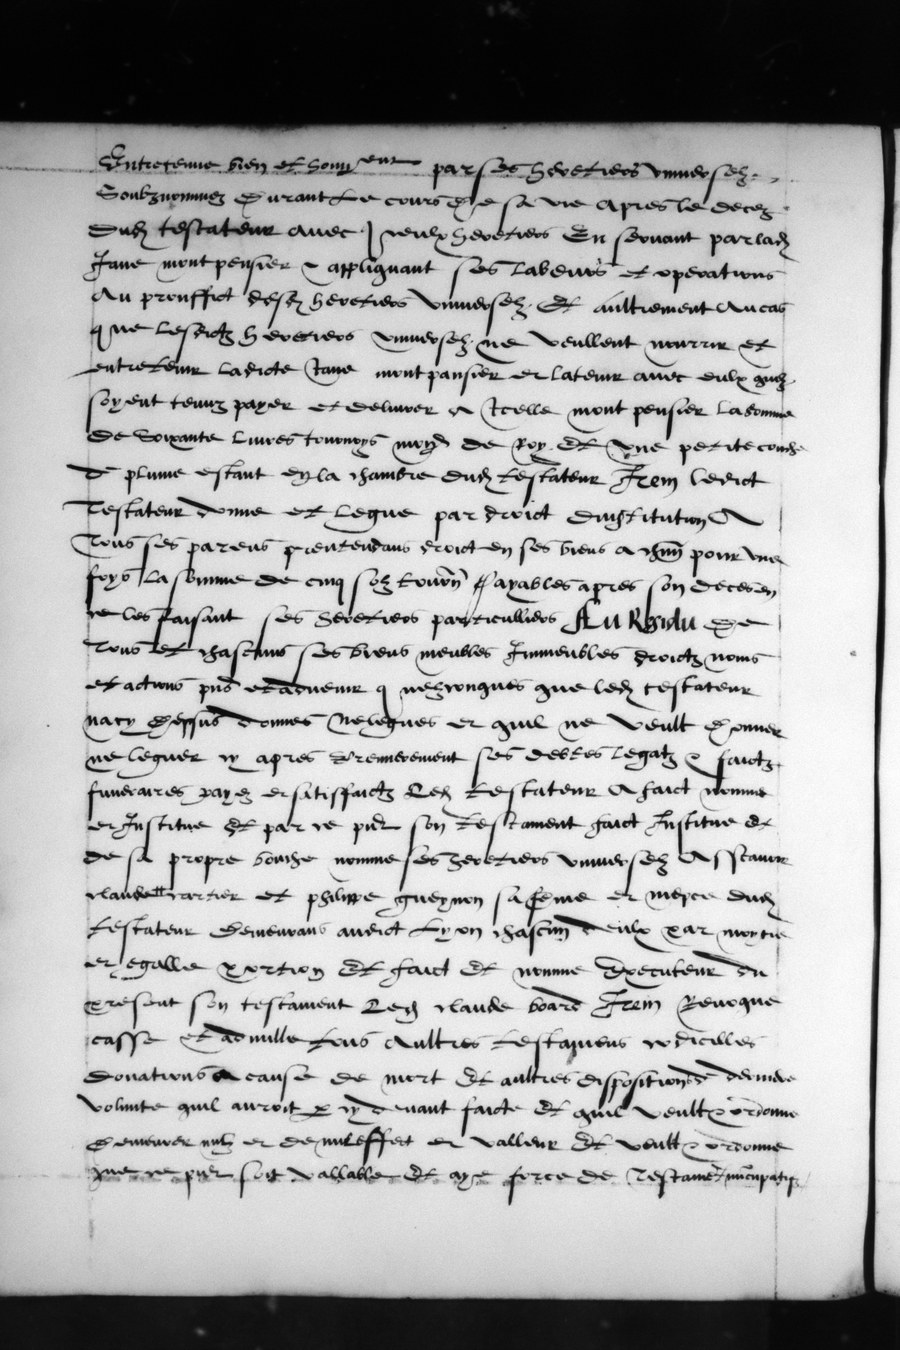 Entretenue bien et honn^ent par ses heretiers universelz
Soubznommez Durant le cours de sa vie apres le decez
Dud testateur avec iceulx heretiers En servant par lad
Jane montpensier & applignant ses labeurs et operations
Au prouffict desd heretiers universelz. Et aultrement Au cas
que lesdictz heretiers universelz ne veullent nourrir et
entretenir ladicte Jane montpansier et la tenir avec eulx quilz
soyent tenuz payer et delivrer a Icelle montpensier la somme
de Soixante livres tournoys monn de Roy. Et une petite couche
de plume estant en la chambre dud testateur Item ledict
Testateur donne et legue par droict dinstitution A
Tous ses parens pretendans droict en ses biens a chun pour une
foys la somme de cinq solz tourn Payables apres son deces en
ce les faisant ses heretiers particulliers Au Residu De
Tous et chascuns ses biens meubles Immeubles droictz noms
et actions pns et advenir quelzconques que led testateur
na cy dessus donnes ne legues et quil ne veult donner
ne leguer cy apres premierement ses debtes legatz & faictz
funeraires payez et satisfaictz Led testateur A faict nomme
et Institue Et par ce pnt son testament faict Institue Et
de sa propre bouche nomme ses heretiers universelz Assavoir
claude cartier et philippe gueynon sa feme et niepce dud
testateur demeurans audict Lyon chascun deulx par moytie
et egalle portion Et faict Et nomme Executeur du
present son testament Led claude board Item Revoque
casse Et adnulle tous Aultres testamens codicilles
donations A cause de mort Et aultres dispositions de derniere
volunte quil auroit par cy devant faicte Et quil veult & ordonne
demeurer nulz et de nul effect et valleur Et veult & ordonne
que ce pnt soit vallable Et aye force de Testamet nuncupatif